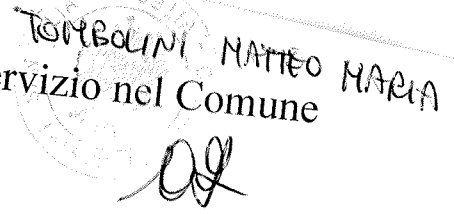 TOMBOLINI MATTEO MARIA
rvizio nel Comune